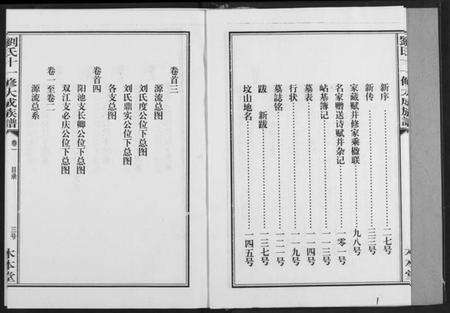 新序……二七号
新传……三三号
家藏赋并修家乘楹联……九八号
名家赠送诗赋并杂记……一零一号
岵基簿记……一一三号
墓表……一一四号
行状……一一九号
墓誌铭……一二一号
跋 新跋……一三七号
坟山地名……一四五号
木本堂
卷首三
源流总图
刘氏度公位下总图
刘氏鼎实公位下总图
各支总图
卷首四
阳池支长卿公位下总图
双江支必庆公位下总图
卷一至卷二
源流总系
劉氏十一修大成族譜
卷二
目录
三号
木本堂